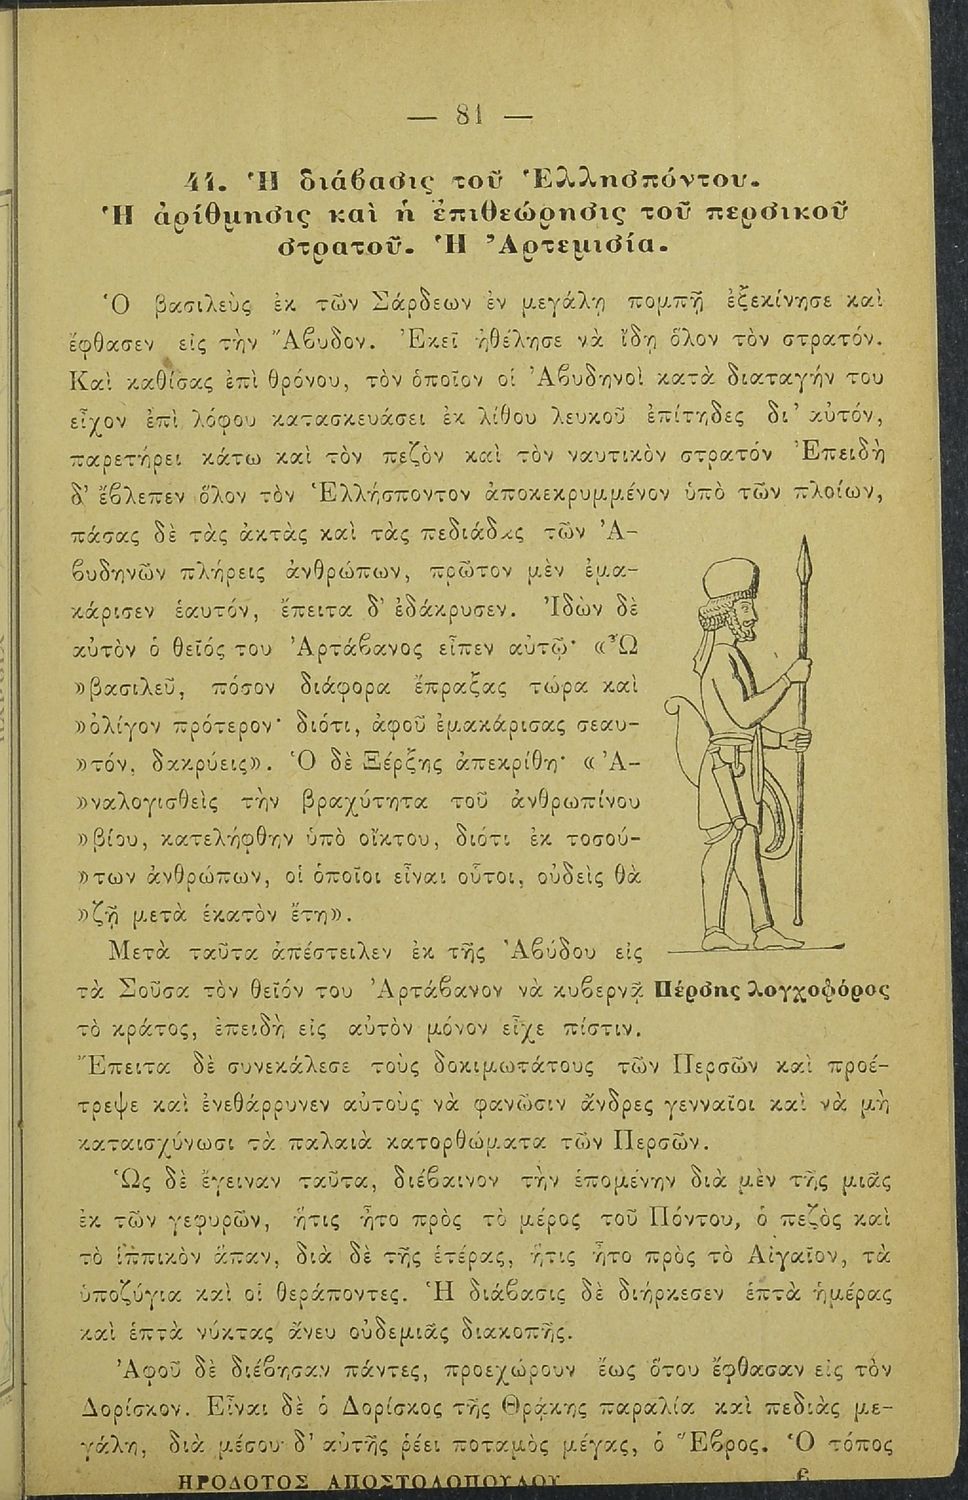 — 81 —
44. Ἡ διάβασις τοῦ Ἑλλησπόντου.
Ἡ ἀρίθμησις καὶ ἡ ἐπιθεώρησις τοῦ περσικοῦ
στρατοῦ. Ἡ Ἀρτεμισία.
Ὁ βασιλεὺς ἐκ τῶν Σάρδεων ἐν μεγάλῃ πομπῇ ἐξεκίνησε καὶ
ἔφθασεν εἰς τὴν Ἄβυδον. Ἐκεῖ ἠθέλησε νὰ ἴδῃ ὅλον τὸν στρατόν.
Καὶ καθίσας ἐπὶ θρόνου, τὸν ὁποῖον οἱ Ἀβυδηνοὶ κατὰ διαταγήν του
εἶχον ἐπὶ λόφου κατασκευάσει ἐκ λίθου λευκοῦ ἐπίτηδες δι’ αὐτόν,
παρετήρει κάτω καὶ τὸν πεζὸν καὶ τὸν ναυτικὸν στρατόν Ἐπειδὴ
δ’ ἔβλεπεν ὅλον τὸν Ἑλλήσποντον ἀποκεκρυμμένον ὑπὸ τῶν πλοίων,
πάσας δὲ τὰς ἀκτὰς καὶ τὰς πεδιάδας τῶν Ἀ-
βυδηνῶν πλήρεις ἀνθρώπων, πρῶτον μὲν ἐμα-
κάρισεν ἑαυτόν, ἔπειτα δ’ ἐδάκρυσεν. Ἰδὼν δὲ
αὐτὸν ὁ θεῖός του Ἀρτάβανος εἶπεν αὐτῷ· «Ὦ
»βασιλεῦ, πόσον διάφορα ἔπραξας τώρα καὶ
»ὀλίγον πρότερον· διότι, ἀφοῦ ἐμακάρισας σεαυ-
»τόν, δακρύεις». Ὁ δὲ Ξέρξης ἀπεκρίθη· «Ἀ-
»ναλογισθεὶς τὴν βραχύτητα τοῦ ἀνθρωπίνου
»βίου, κατελήφθην ὑπὸ οἴκτου, διότι ἐκ τοσού-
»των ἀνθρώπων, οἱ ὁποῖοι εἶναι οὗτοι, οὐδεὶς θὰ
»ζῇ μετὰ ἑκατὸν ἔτη».
Μετὰ ταῦτα ἀπέστειλεν ἐκ τῆς Ἀβύδου εἰς
τὰ Σοῦσα τὸν θεῖόν του Ἀρτάβανον νὰ κυβερνᾷ
τὸ κράτος, ἐπειδὴ εἰς αὐτὸν μόνον εἶχε πίστιν.
Πέρσης λογχοφόρος
Ἔπειτα δὲ συνεκάλεσε τοὺς δοκιμωτάτους τῶν Περσῶν καὶ προέ-
τρεψε καὶ ἐνεθάρρυνεν αὐτοὺς νὰ φανῶσιν ἄνδρες γενναῖοι καὶ νὰ μὴ
καταισχύνωσι τὰ παλαιὰ κατορθώματα τῶν Περσῶν.
Ὡς δὲ ἔγειναν ταῦτα, διέβαινον τὴν ἑπομένην διὰ μὲν τῆς μιᾶς
ἐκ τῶν γεφυρῶν, ἥτις ἦτο πρὸς τὸ μέρος τοῦ Πόντου, ὁ πεζὸς καὶ
τὸ ἱππικὸν ἅπαν, διὰ δὲ τῆς ἑτέρας, ἥτις ἦτο πρὸς τὸ Αἰγαῖον, τὰ
ὑποζύγια καὶ οἱ θεράποντες. Ἡ διάβασις δὲ διήρκεσεν ἑπτὰ ἡμέρας
καὶ ἑπτὰ νύκτας ἄνευ οὐδεμιᾶς διακοπῆς.
Ἀφοῦ δὲ διέβησαν πάντες, προεχώρουν ἕως ὅτου ἔφθασαν εἰς τὸν
Δορίσκον. Εἶναι δὲ ὁ Δορίσκος τῆς Θρᾴκης παραλία καὶ πεδιὰς με-
γάλη, διὰ μέσου δ’ αὐτῆς ῥέει ποταμὸς μέγας, ὁ Ἕβρος. Ὁ τόπος
ΗΡΟΔΟΤΟΣ ΑΠΟΣΤΟΛΟΠΟΥΛΟΥ